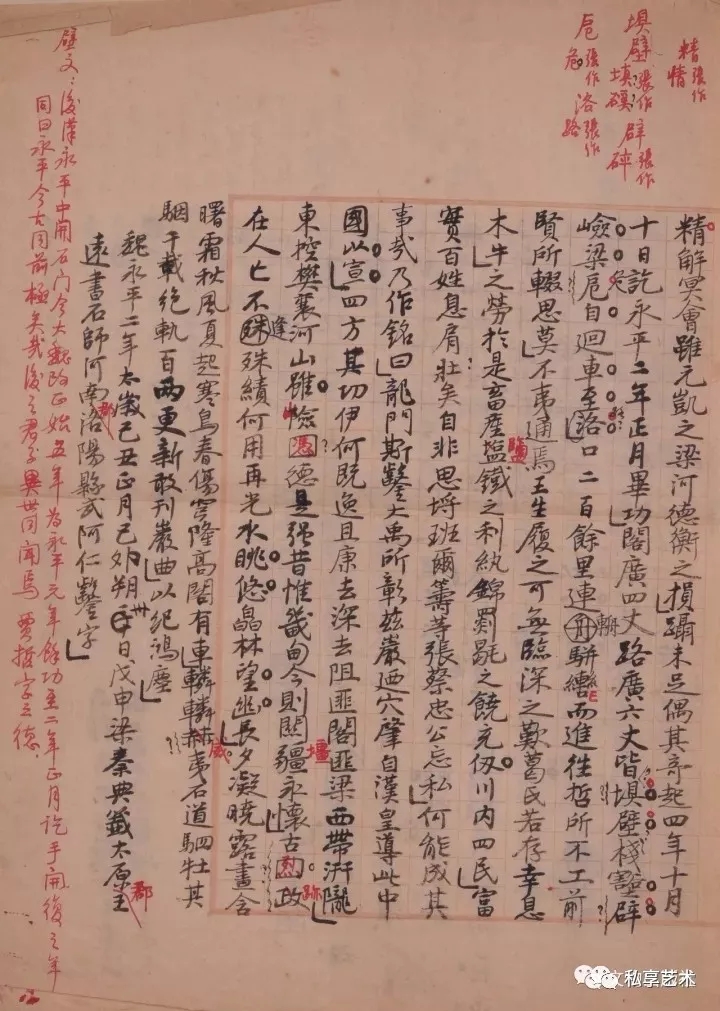 精 張作情
塤壁 張作填磶 辟 張作碎
戹 張作危 洛 張作路
精解冥會雖元凱之梁河德衡之損躡未足偶其奇起四年十月
十日訖永平二年正月畢功閣廣四丈路廣六丈皆塤壁棧壑辟
嶮梁戹自迴車至洛口二百餘里連輈駢轡而進往哲所不工前
賢所輟思莫不夷通焉王生履之可無臨深之歎葛氏若存幸息
木牛之勞於是畜產鹽鐵之利紈錦罽毼之饒充仞川內四民富
實百姓息肩壯矣自非思埒班爾籌等張蔡忠公忘私何能成其
事哉乃作銘曰龍門斯鑿大禹所彰茲巖迺穴肇自漢皇導此中
國以宣四方其功伊何既逸且康去深去阻匪閣匪梁西帶汧隴
東控樊襄河山雖嶮憑德是强昔惟畿甸今則關疆永懷古烈跡
在人亡不逢殊績何用再光水眺悠皛林望幽長夕凝曉露晝含
曙霜秋風夏起寒鳥春傷穹隆高閣有車轔轔夷石道駟牡其
駰千載絕軌百兩更新敢刊巖曲以紀鴻塵
魏永平二年太歲己丑正月己卯朔卅日戊申梁秦典籤太原郡王
遠書石師河南郡洛陽縣武阿仁鑿字
後漢永平中開石门今大魏改正始五年為永平元年餘功至二年正月訖手開復之年
同曰永平今古同前極矣哉後之君子異世同聞焉 賈哲字三德
私享艺术